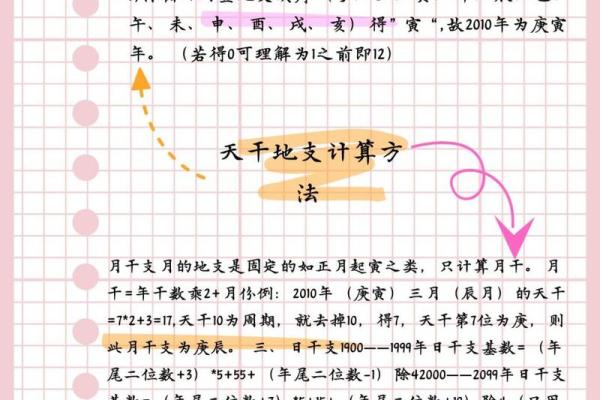 午、未、申、酉、戌、亥）得”寅“,故2010年为庚寅
年。（若得0可理解为1之前即12）
天干地支计算方
法
月干支月的地支是固定的如正月起寅之类，只计算月干。月
干=年干数乘2+月份例：2010年（庚寅）三月（辰月）的天干
=7*2+3=17,天干10为周期，就去掉10，得7，天干第7位为庚，则
此月干支为庚辰。三、日干支1900——1999年日干支基数=（年
尾二位数+3）*5+55+（年尾二位数-1）除42000——2099年日干支